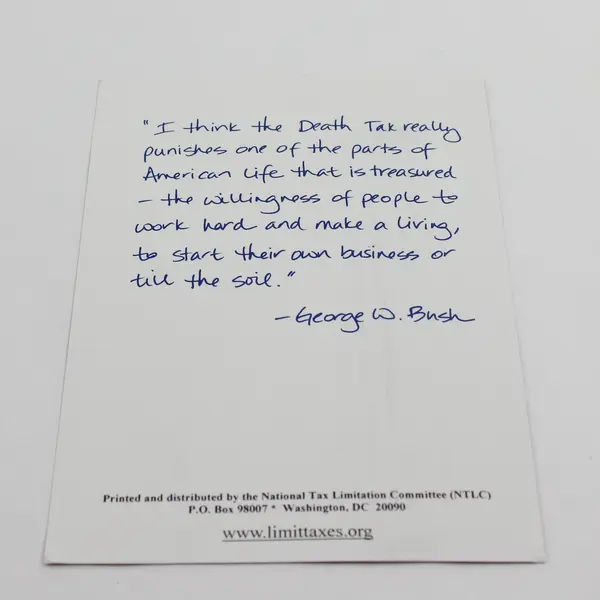 "I think the Death Tax really
punishes one of the parts of
American life that is treasured
- the willingness of people to
work hard and make a living,
to start their own business or
till the soil."
- George W. Bush
Printed and distributed by the National Tax Limitation Committee (NTLC)
P.O. Box 98007 * Washington, DC 20090
www.limittaxes.org